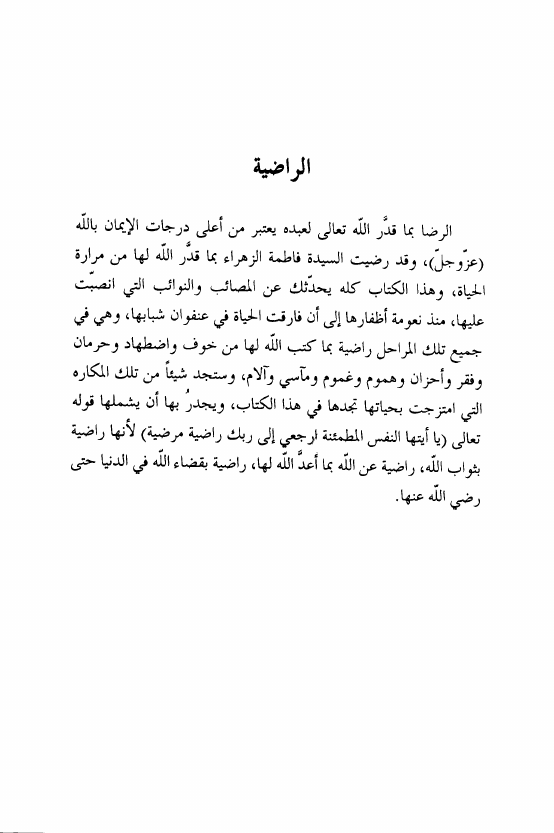 الراضية
الرضا بما قدَّر الله تعالى لعبده يعتبر من أعلى درجات الإيمان بالله
(عزّوجلّ)، وقد رضيت السيدة فاطمة الزهراء بما قدَّر الله لها من مرارة
الحياة، وهذا الكتاب كله يحدّثك عن المصائب والنوائب التي انصبّت
عليها، منذ نعومة أظفارها إلى أن فارقت الحياة في عنفوان شبابها، وهي في
جميع تلك المراحل راضية بما كتب الله لها من خوف واضطهاد وحرمان
وفقر وأحزان وهموم وغموم ومآسي وآلام، وستجد شيئاً من تلك المكاره
التي امتزجت بحياتها تجدها في هذا الكتاب، ويجدرُ بها أن يشملها قوله
تعالى (يا أيتها النفس المطمئنة ارجعي إلى ربك راضية مرضية) لأنها راضية
بثواب الله، راضية عن الله بما أعدَّ الله لها، راضية بقضاء الله في الدنيا حتى
رضي الله عنها.